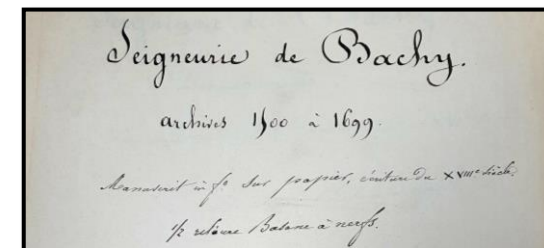 Seigneurie de Bachy.
archives 1500 à 1699.
Manuscrit in fº sur papier, écriture du XVIIIe siècle.
1/2 reliure Basane à nerfs.